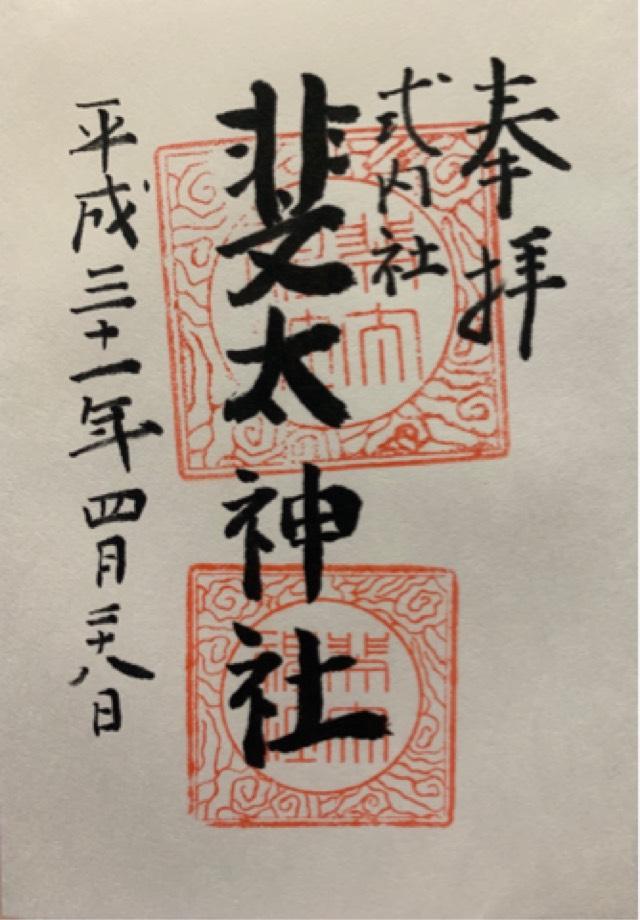 奉拝
式内社
斐太神社
平成三十一年四月二十八日